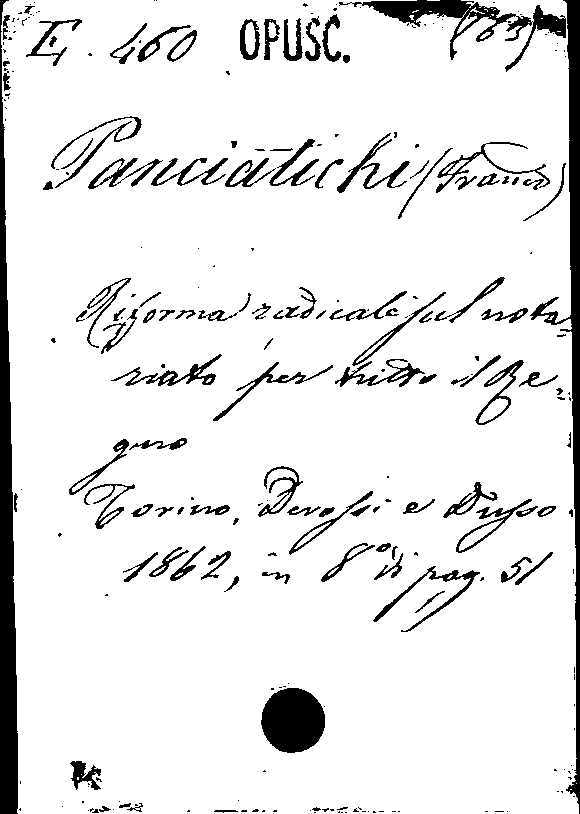 E. 460 OPUSC. (763)
Panciatichi (Franco)
Riforma radicale sul nota=
riato per tutto il Re=
gno
Torino, Derossi e Dusso
1862, in 8° di pag. 51